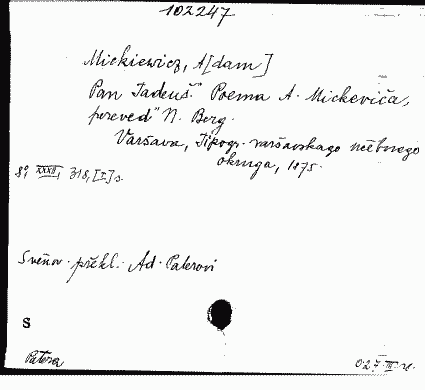 102247
Mickiewicz, A[dam]
Pan Tadeuš." Poema A. Mickeviča,
pereved" N. Berg.
Varšava, Tipogr. varšavskago učebnago
okruga, 1875.
8°, XXXII, 318, [I] s.
Sněnov. překl. Ad. Paterovi
S
Patera